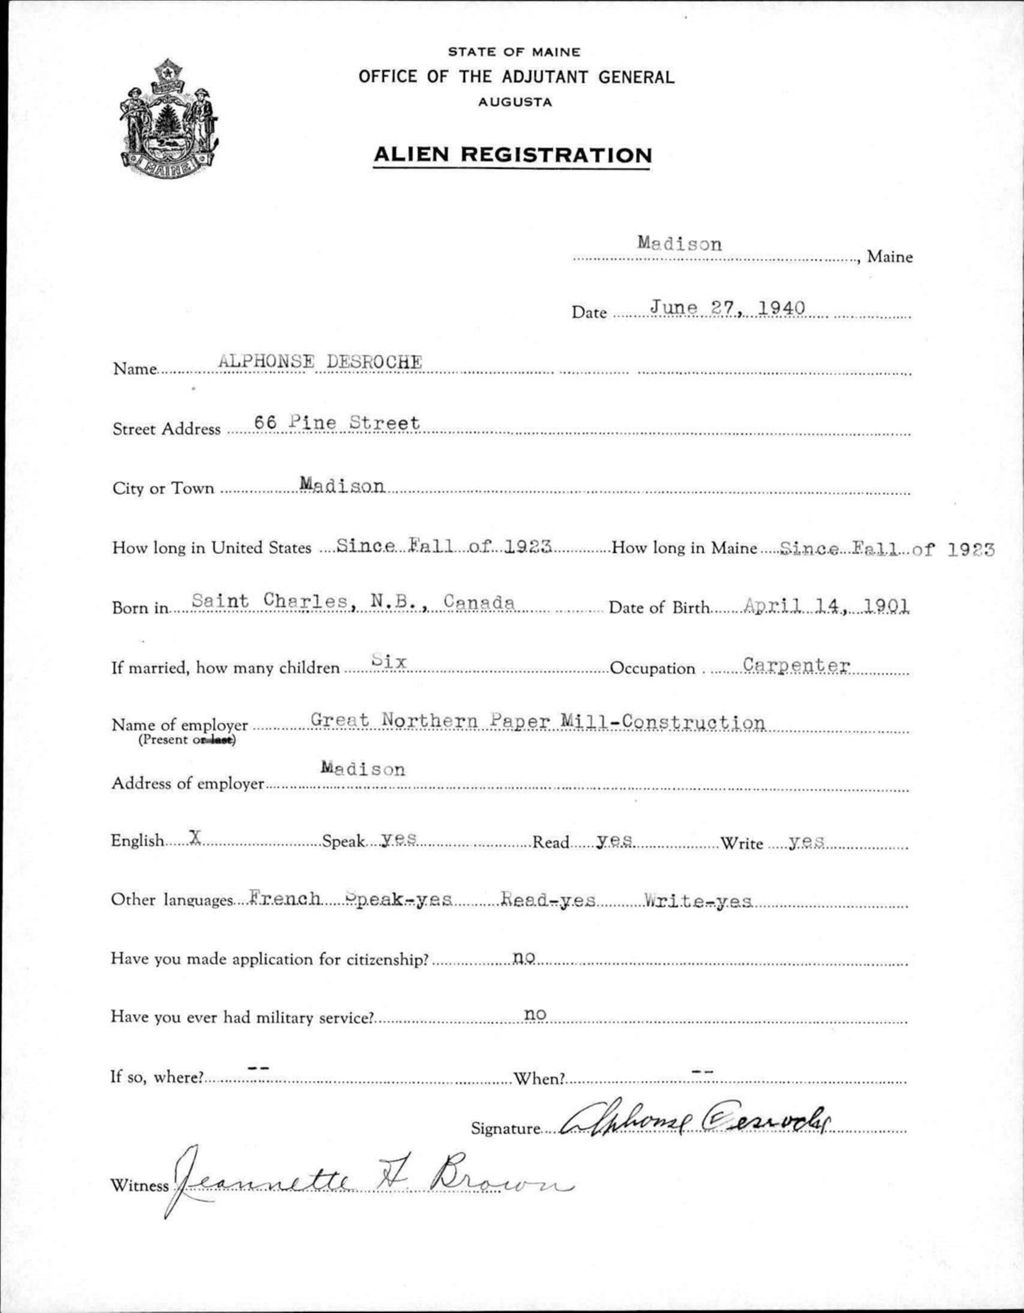 STATE OF MAINE
OFFICE OF THE ADJUTANT GENERAL
AUGUSTA
ALIEN REGISTRATION
MAINE
Madison, Maine
Date June 27, 1940
Name ALPHONSE DESROCHE
Street Address 66 Pine Street
City or Town Madison
How long in United States Since Fall of 1923 How long in Maine Since Fall of 1923
Born in Saint Charles, N.B., Canada Date of Birth April 14, 1901
If married, how many children Six Occupation Carpenter
Name of employer Great Northern Paper Mill-Construction
(Present or last)
Address of employer Madison
English X Speak yes Read yes Write yes
Other languages French Speak-yes Read-yes Write-yes
Have you made application for citizenship? no
Have you ever had military service? no
If so, where? -- When? --
Signature Alphonse Desroche
Witness Jeannette H Brown